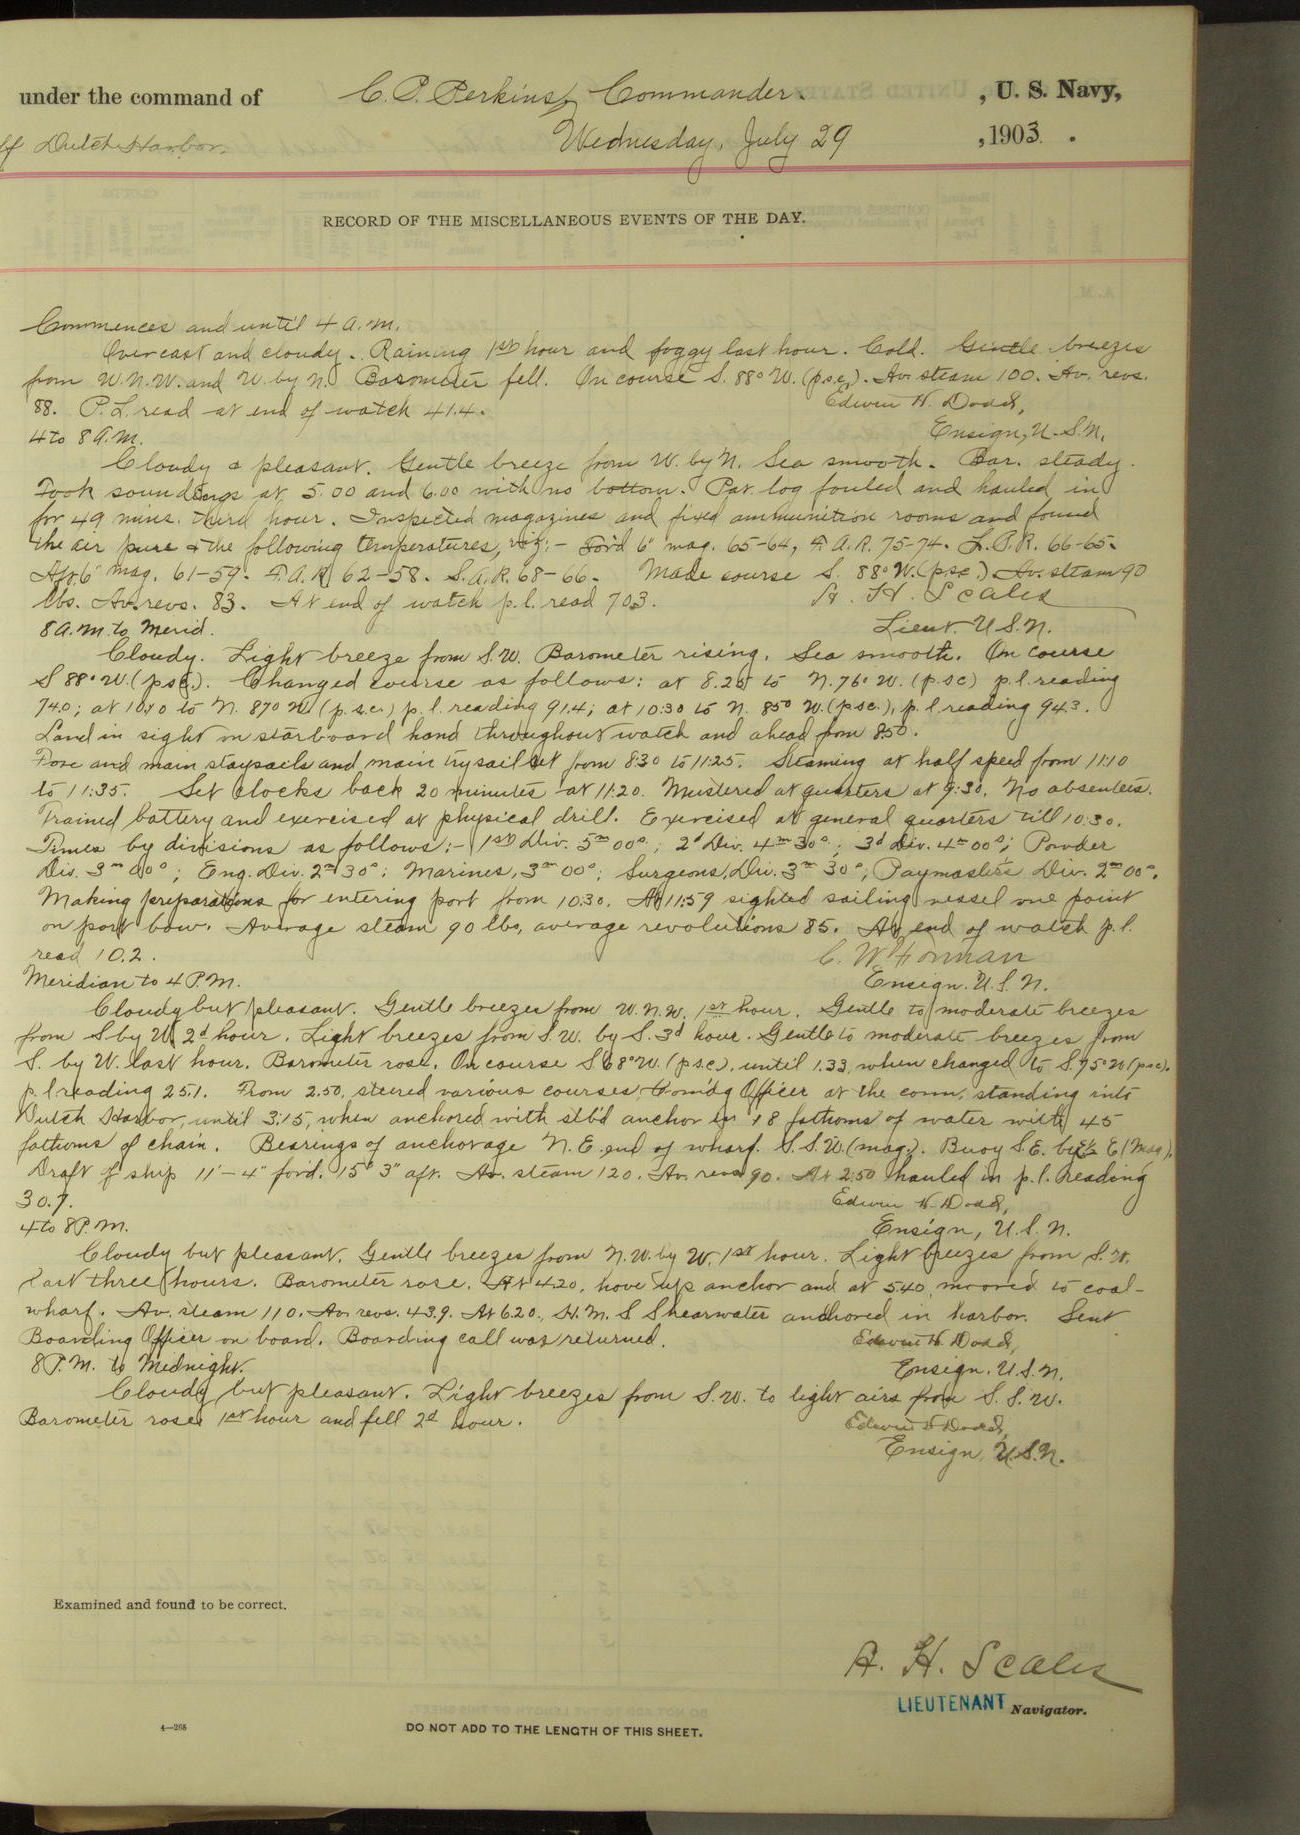 under the command of C. P. Perkins, Commander. , U. S. Navy,
Dutch Harbor. Wednesday, July 29 , 1903 .
RECORD OF THE MISCELLANEOUS EVENTS OF THE DAY.
Commences and until 4 A.M.
Overcast and cloudy. Raining 1st hour and foggy last hour. Cold. Gentle breezes
from W.N.W. and W. by N. Barometer fell. On course S. 88° W. (p.s.c.). Av. steam 100. Av. revs.
88. P.L. read at end of watch 41.4. Edwin H. Dodd,
Ensign, U.S.N.
4 to 8 A.M.
Cloudy & pleasant. Gentle breeze from W. by N. Sea smooth. Bar. steady.
Took soundings at 5.00 and 6.00 with no bottom. Pat. log fouled and hauled in
for 49 mins. third hour. Inspected magazines and fixed ammunition rooms and found
the air pure & the following temperatures, viz:- For'd 6" mag. 65-64, F.A.R. 75-74. L.P.R. 66-65.
Aft. 6" mag. 61-59. F.A.R. 62-58. S.A.R. 68-66. Made course S. 88° W. (p.s.c.) Av. steam 90
lbs. Av. revs. 83. At end of watch p.l. read 70.3. A. H. Scales
Lieut. U.S.N.
8 A.M. to Merid.
Cloudy. Light breeze from S.W. Barometer rising. Sea smooth. On course
S 88° W. (psc.). Changed course as follows: at 8.25 to N. 76° W. (p.s.c) p.l. reading
74.0; at 10.10 to N. 87° W. (p.s.c.) p.l. reading 91.4; at 10:30 to N. 85° W. (psc.), p.l reading 94.3.
Land in sight on starboard hand throughout watch and ahead from 8.50.
Fore and main staysails and main trysail set from 8:30 to 11:25. Steaming at half speed from 11:10
to 11:35. Set clocks back 20 minutes at 11:20. Mustered at quarters at 9:30. No absentees.
Trained battery and exercised at physical drill. Exercised at general quarters till 10:30.
Times by divisions as follows:- 1st Div. 5m 00s; 2d Div. 4m 30s; 3d Div. 4m 00s; Powder
Div. 3m 00s; Eng. Div. 2m 30s; Marines, 3m 00s; Surgeons, Div. 3m 30s; Paymaster's Div. 2m 00s.
Making preparations for entering port from 10:30. At 11:59 sighted sailing vessel one point
on port bow. Average steam 90 lbs, average revolutions 85. At end of watch p.l.
read 10.2. C. W. Forman
Ensign. U.S.N.
Meridian to 4 P.M.
Cloudy but pleasant. Gentle breezes from W.N.W. 1st hour. Gentle to moderate breezes
from S by W. 2d hour. Light breezes from S.W. by S. 3d hour. Gentle to moderate breezes from
S. by W. last hour. Barometer rose. On course S 68° W. (p.s.c). until 1.33, when changed to S. 75° W (psc).
p.l reading 25.1. From 2.50, steered various courses, Com'dg Officer at the conn, standing into
Dutch Harbor, until 3:15, when anchored with stb'd anchor in 18 fathoms of water with 45
fathoms of chain. Bearings of anchorage N.E. end of wharf. S.S.W. (mag.). Buoy S.E. by E½ E (Mag).
Draft of ship 11'-4" for'd. 15' 3" aft. Av. steam 120. Av. revs 90. At 2:50 hauled in p.l. reading
30.7. Edwin H. Dodd,
Ensign, U.S.N.
4 to 8 P.M.
Cloudy but pleasant. Gentle breezes from N.W. by W. 1st hour. Light breezes from S.W.
last three hours. Barometer rose. At 4.20, hove up anchor and at 5.40, moored to coal-
wharf. Av. steam 110. Av. revs. 43.9. At 6.20, H.M.S Shearwater anchored in harbor. Sent
Boarding Officer on board. Boarding call was returned. Edwin H. Dodd,
Ensign. U.S.N.
8 P.M. to Midnight.
Cloudy but pleasant. Light breezes from S.W. to light airs from S.S.W.
Barometer rose 1st hour and fell 2d hour. Edwin H Dodd,
Ensign, U.S.N.
Examined and found to be correct.
A. H. Scales
LIEUTENANT Navigator.
4—268
DO NOT ADD TO THE LENGTH OF THIS SHEET.